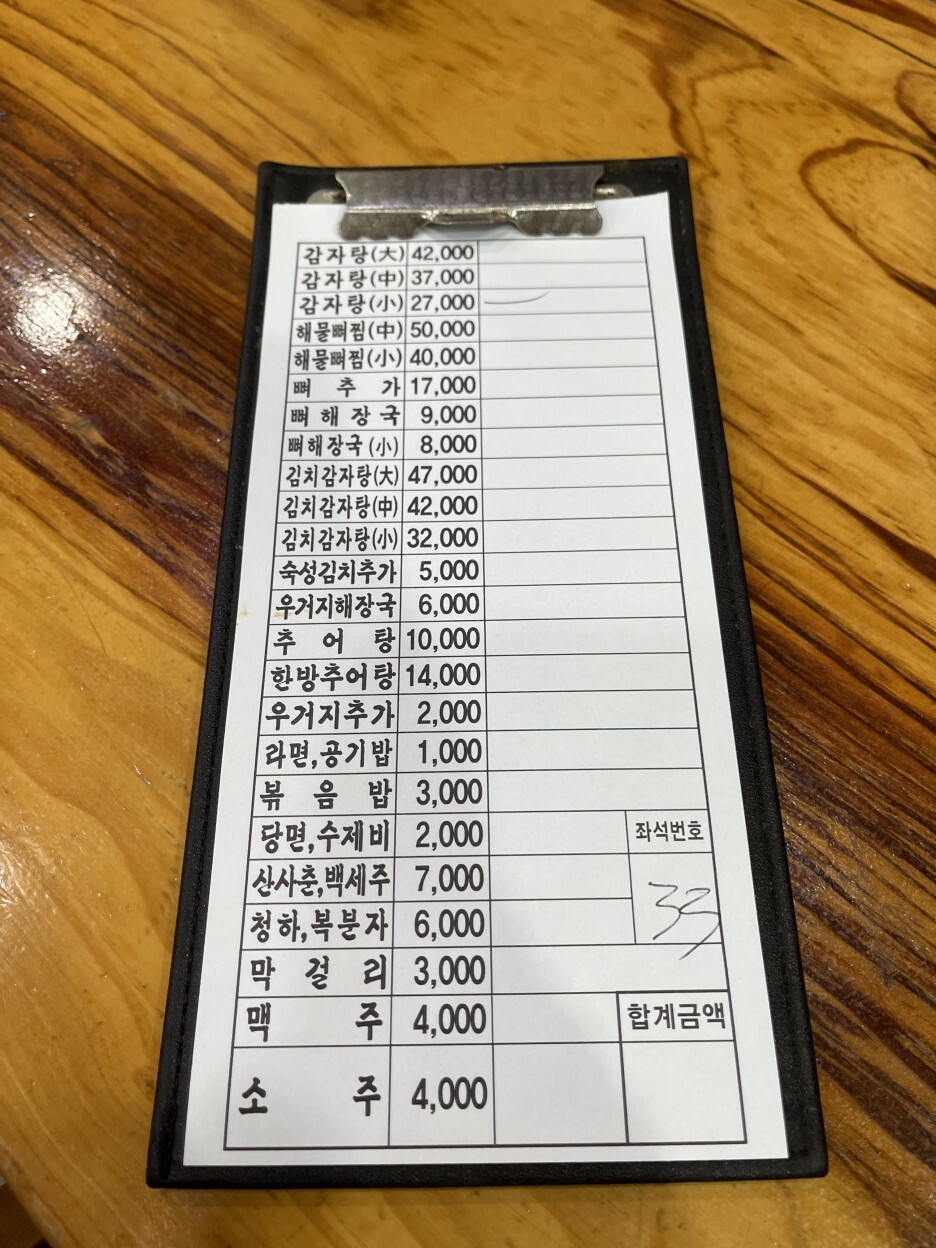 감자탕(大) 42,000
감자탕(中) 37,000
감자탕(小) 27,000
해물뼈찜(中) 50,000
해물뼈찜(小) 40,000
뼈 추 가 17,000
뼈 해 장 국 9,000
뼈해장국(小) 8,000
김치감자탕(大) 47,000
김치감자탕(中) 42,000
김치감자탕(小) 32,000
숙성김치추가 5,000
우거지해장국 6,000
추 어 탕 10,000
한방추어탕 14,000
우거지추가 2,000
라면,공기밥 1,000
볶 음 밥 3,000
당면,수제비 2,000 좌석번호
산사춘,백세주 7,000 33
청하,복분자 6,000
막 걸 리 3,000
맥 주 4,000 합계금액
소 주 4,000